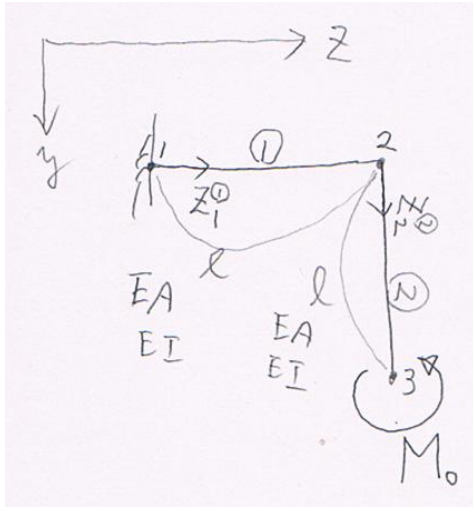 Z
y
1
①
2
Z₁^①
Z₂^②
l
l
②
EA
EI
EA
EI
3
M₀